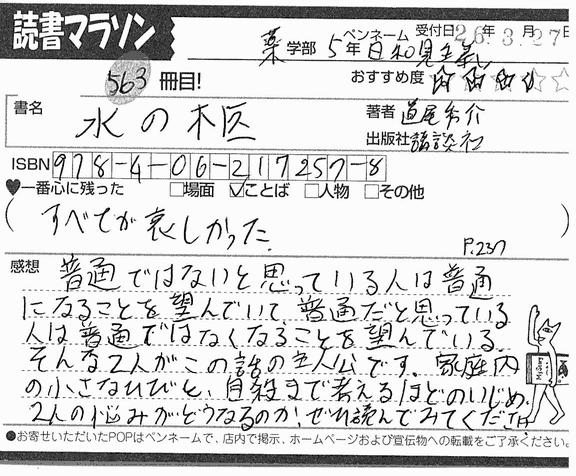 読書マラソン
薬学部 5年 ペンネーム 日和見主義 受付日 26年3月27日
563冊目! おすすめ度 ☆☆☆☆☆
書名 水の柩 著者 道尾秀介
出版社 講談社
ISBN 978-4-06-217257-8
♥一番心に残った □場面 ☑ことば □人物 □その他
(すべてが哀しかった。)
P.237
感想 普通ではないと思っている人は普通
になることを望んでいて、普通だと思っている
人は普通ではなくなることを望んでいる。
そんな2人がこの話の主人公です。家庭内
の小さなひびと、自殺まで考えるほどのいじめ。
2人の悩みがどうなるのか、ぜひ読んでみてください
●お寄せいただいたPOPはペンネームで、店内で掲示、ホームページおよび宣伝物への転載をご了承ください。